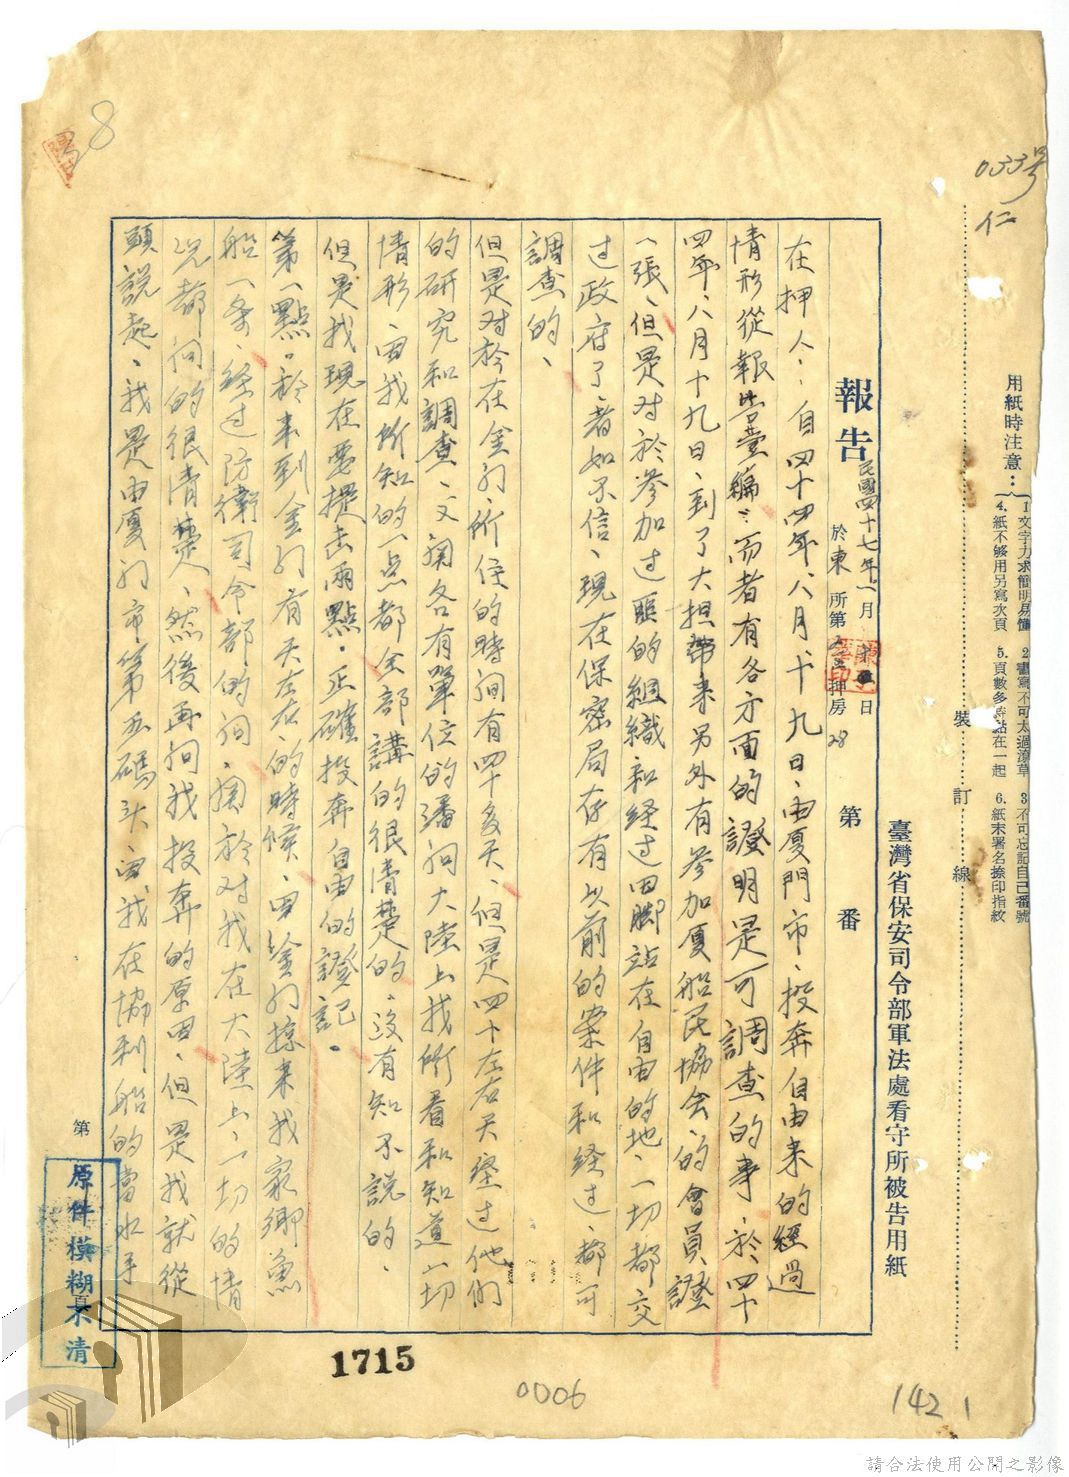 033号
仁
用紙時注意：
1. 文字力求簡明易懂 2. 書寫不可太過潦草 3. 不可忘記自己番號
4. 紙不够用另寫次頁 5. 頁數多時點在一起 6. 紙末署名捺印指紋
裝訂線
臺灣省保安司令部軍法處看守所被告用紙
報告
民國四十七年一月 日
於東所第 押房28
第 番
在押人：自四十四年八月十九日、由厦門市、投奔自由来的經過
情形從報告 編：而者有各方面的證明是可調查的事、於四十
四年八月十九日、到了大担 来另外有參加厦船民協会、的會員證
一張、但是对於參加过匪的組織和経过田脚站在自由的地、一切都交
过政府了、者如不信、現在保密局存有以前的案件和経过、都可
調查的、
但是对於在金门、所住的時间有四十多天、但是四十左右天經过他们
的研究和調查、文 各有單位的 大陸上我所看和知道一切
情形、由我所知的一点都全部講的很清楚的、没有知不説的、
但是我現在要提出兩點。正確投奔自由的證記。
第一點。於来到金门有 天左右的時候、由金门 来我家鄉魚
船一条、経过防衛司令部的问、関於对我在大陸上、一切的情
况都问的很清楚、然後再问我投奔的原因、但是我就從
頭說起、我是由厦门市、第五碼头、由我在協利船的當水手
第
頁
原件模糊不清
1715
0006
142
1
38
請合法使用公開之影像